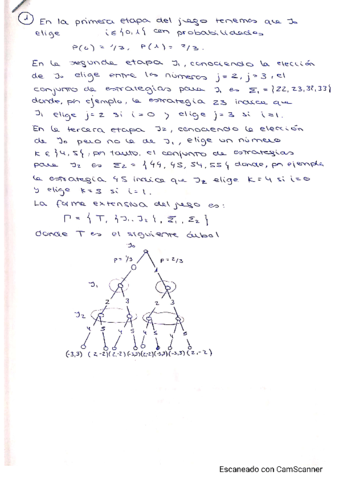 ①
En la primera etapa del juego tenemos que J₀
elige i∈{0,1} con probabilidades
P(0) = 1/3, P(1) = 2/3.
En la segunda etapa J₁, conociendo la elección
de J₀ elige entre los números j=2, j=3, el
conjunto de estrategias para J₁ es Σ₁ = {22, 23, 32, 33}
donde, por ejemplo, la estrategia 23 indica que
J₁ elige j=2 si i=0 y elige j=3 si i=1.
En la tercera etapa J₂, conociendo la elección
de J₀ pero no la de J₁, elige un número
k∈{4,5}, por tanto, el conjunto de estrategias
para J₂ es Σ₂ = {44, 45, 54, 55} donde, por ejemplo
la estrategia 45 indica que J₂ elige k=4 si i=0
y elige k=5 si i=1.
La forma extensiva del juego es:
Γ = {T, {J₁, J₂}, Σ₁, Σ₂}
donde T es el siguiente árbol
J₀
P=1/3 P=2/3
0 1
J₁
2 3 2 3
J₂
4 5 4 5 4 5 4 5
(-3,3) (2,-2) (2,-2)
Escaneado con CamScanner